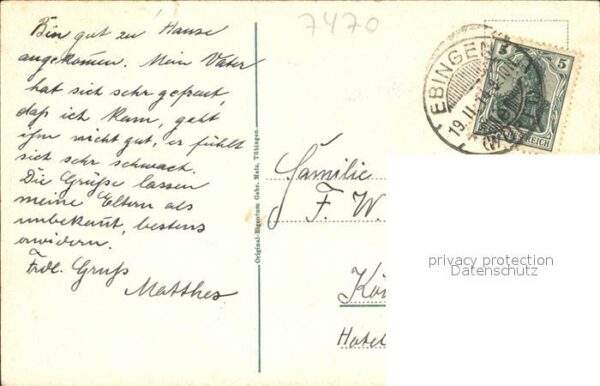 7470
Bin gut zu Hause
angekommen. Mein Vater
hat sich sehr gefreut,
daß ich kam, geht
ihm nicht gut, er fühlt
sich sehr schwach.
Die Grüße lassen
meine Eltern als
unbekannt, bestens
erwidern.
Frdl. Gruß
Matthes
Original-Eigentum Gebr. Metz, Tübingen.
EBINGEN
19 II
5 5
REICH
Familie
F. W.
Kön
Hotel
privacy protection
Datenschutz